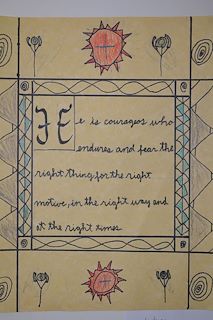 He is courageos who
endures and fear the
right thing, for the right
motive, in the right way and
at the right times